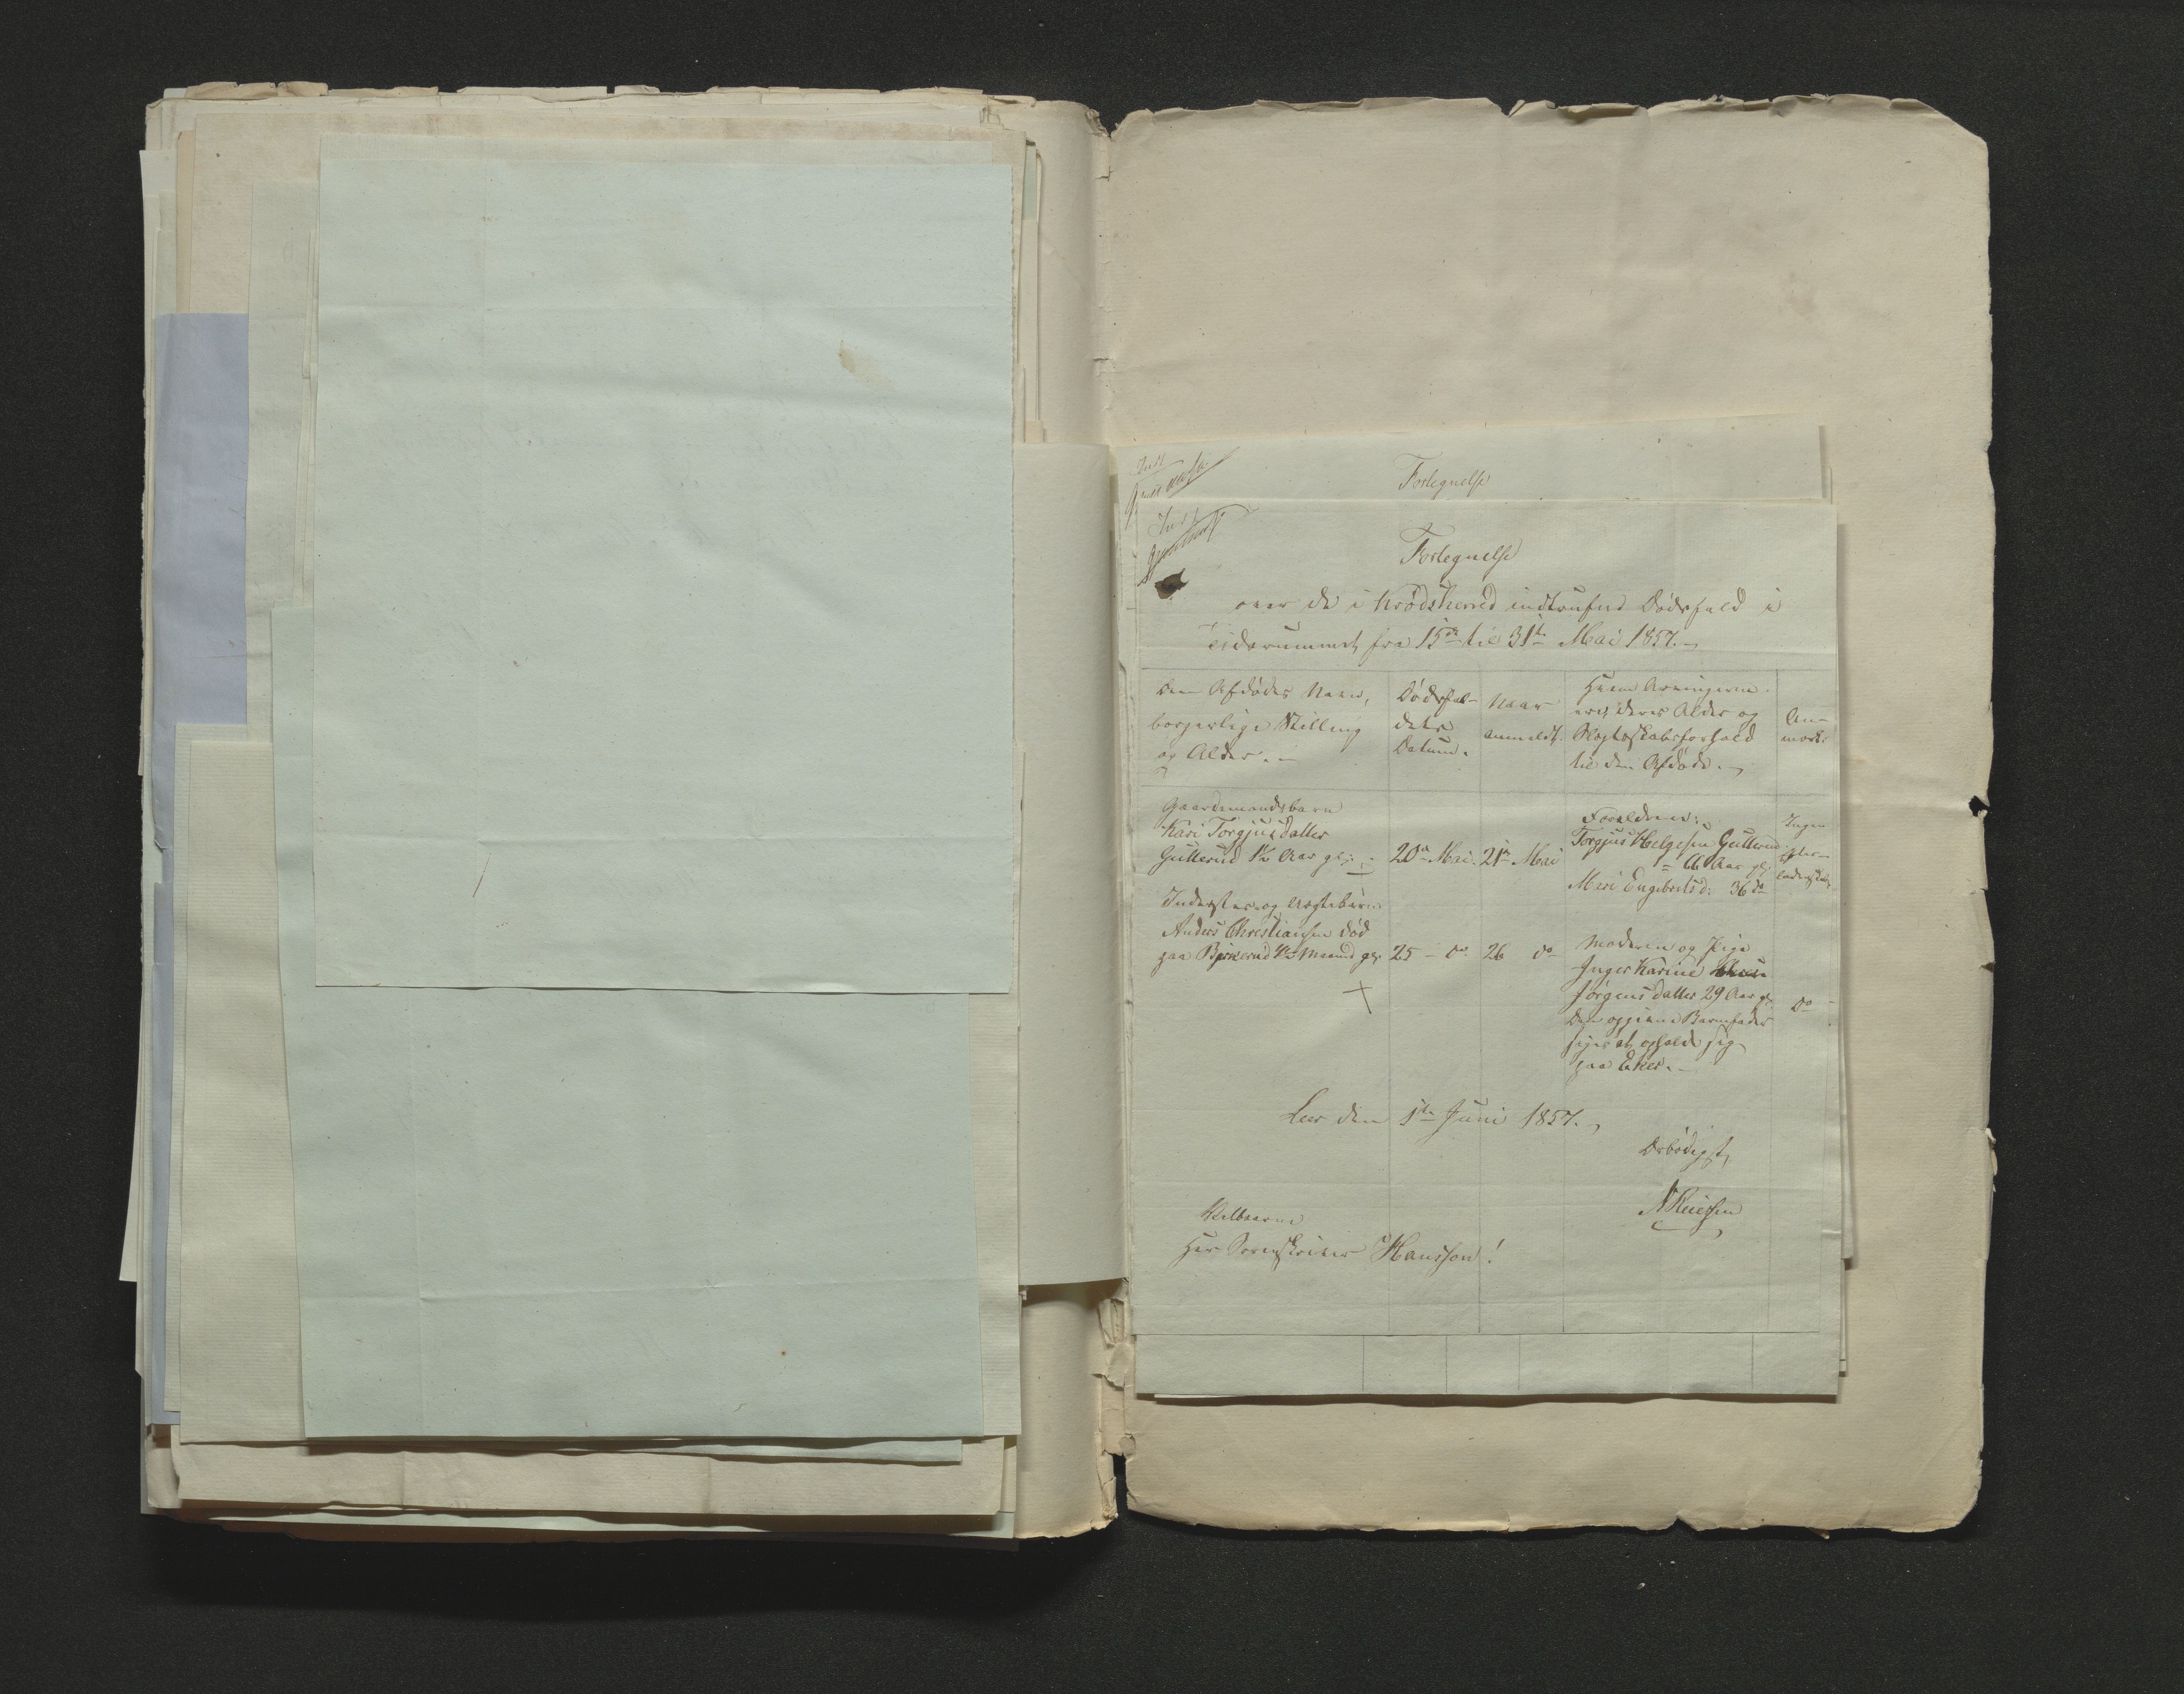 Fortegnelse
Fortegnelse
over de i Krødsherred indtrufne Dødsfald i
Tidsrummet fra 15de til 31te Mai 1857.
Den Afdødes Navn,
borgerlige Stilling
og Alder.
Dødsfal-
dets
Datum.
Naar
anmeldt.
Hvem Arvingerne
ere, deres Alder og
Slægtskabsforhold
til den Afdøde.
An-
mærk:
Gaardmandsbarn
Kari Torgjusdatter
Gulterud ½ Aar gl:
20de Mai.
21de Mai
Forældrene:
Torgjus Helgesen Gulterud
Aar gl:
Mari Engebretsd: 36 do
Ingen
Efter-
ladenskab
Inderst og Uægtebarn
Anders Christiansen død
paa Bjørnerud Maaned gl:
25 - do
26 do
Moderen og Pige
Inger Karine
Jørgensdatter 29 Aar gl:
Den opgivne Barnefader
siges at opholde sig
paa Eker.
do
Leer den 1te Juni 1857.
Ærbødigst
Velbaarne
Herr Sorenskriver Hansson!